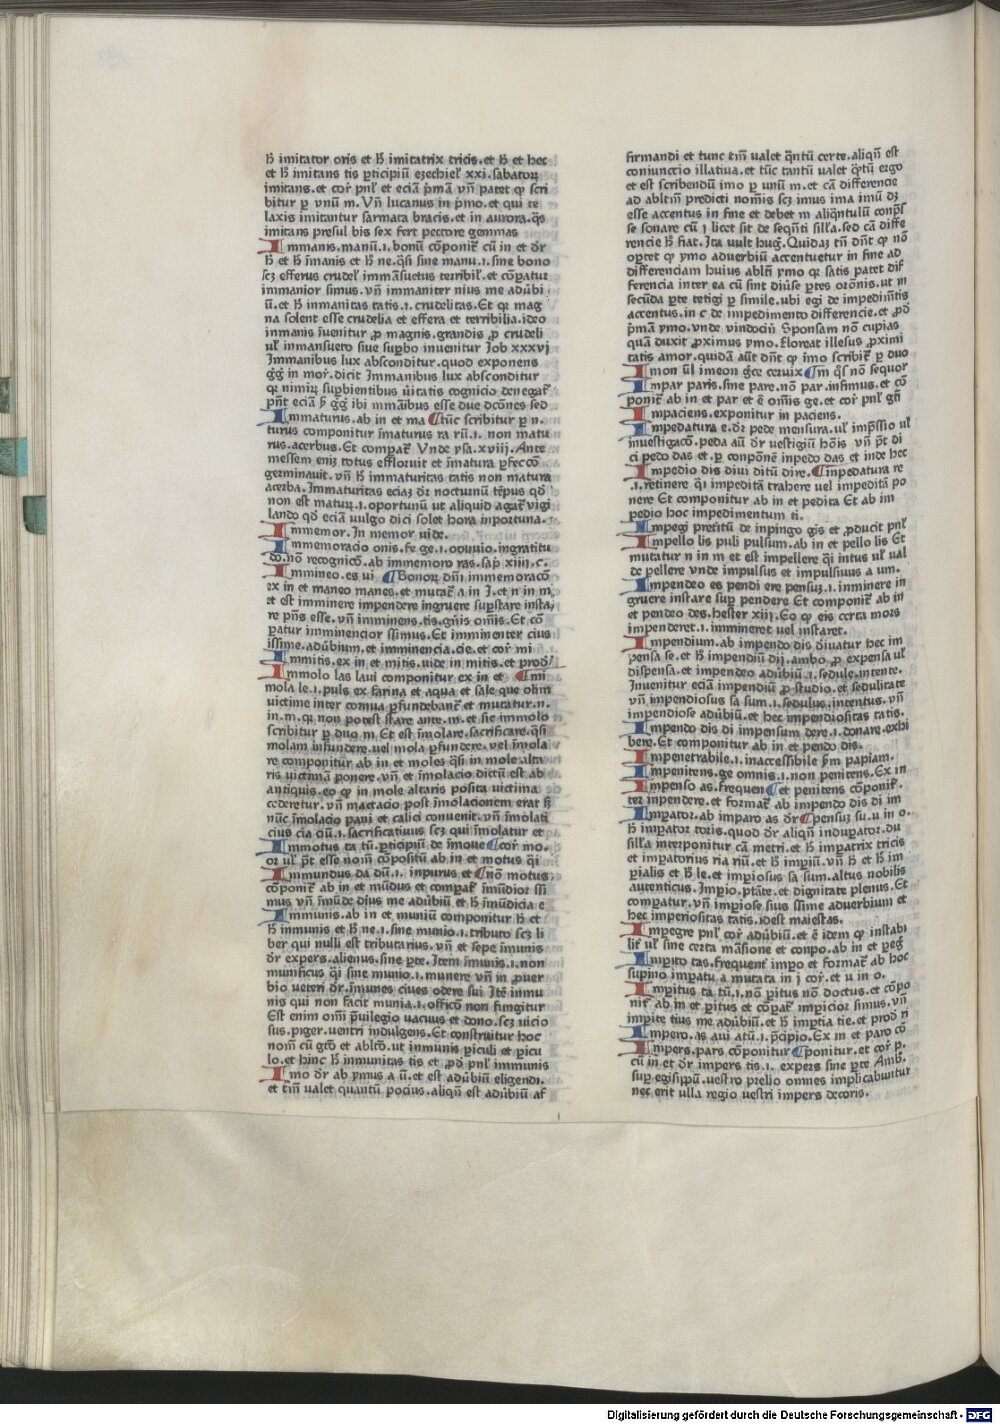 hꝰ imitator oris et hꝰ imitatrix tricis.et hꝰ et hec
et hꝰ imitans tis ꝑticipiū ezechiel' xxi.sabatoꝝ
imitans.et cor̄ pnl̄ et eciā p̄mā vn̄ patet ꝙ scri
bitur ꝑ vnū m.Vn̄ lucanus in p̄mo.et qui te
laxis imitantur sarmata bracis.et in aurora.q̄s
imitans presul bis sex fert pectore gemmas
Immanis.manū.i.bonū cōponit̄ cū in et dr̄
hꝰ et hꝰ īmanis et hꝰ ne.q̄si sine manu.i.sine bono
scꝫ efferus crudel' immāsuetus terribil'.et cōpatur
immanior simus.vn̄ immaniter nius me adūbi
ū.et hꝰ inmanitas tatis.i.crudelitas.Et qꝛ mag
na solent esse crudelia et effera et terribilia.ideo
inmanis īuenitur ꝓ magnis.grandis ꝓ crudeli
ul' inmansueto siue suꝑbo inuenitur Iob xxxvj
Immanibus lux absconditur.quod exponens
gḡ in mor̄.dicit Immanibus lux absconditur
qꝛ nimiꝝ suꝑbientibus ūitatis cognicio denegat̄
pn̄t eciā ẜ gḡ ibi immāibus esse due dcōnes sed
Immaturus.ab in et ma ¶tūc scribitur ꝑ n.
turus componitur īmaturus ra rū.i. non matu
rus.acerbus.Et compat̄ Vnde ysa.xviii.Ante
messem eniꝫ totus effloruit et īmatura ꝑfeccō
germinauit.vn̄ hꝰ immaturitas tatis non matura
acerba.Immaturitas eciaꝫ dr̄ nocturnū tēpus qd̄
non est matuꝝ.i.oportunū ut aliquid agat̄ vigi
lando qd̄ eciā vulgo dici solet hora inportuna.
Immemor.In memor uide.
Immemoracio onis.fe ge.i.obliuio.ingratitu
do.nō recognicō.ab immemoro ras.sap̄ xiiii.c.
Immineo.es ui ¶Bonoꝝ dn̄i immemoracō
ex in et maneo manes.et mutat̄ a in I.et n in m,
et est imminere impendere ingruere suꝑstare insta,
re pn̄s esse.vn̄ imminens.tis.gn̄is om̄is.Et cō
ꝑatur imminencior ssimus.Et imminenter cius
issime.adūbium.et imminencia.cie.et cor̄ mi
Immitis.ex in et mitis.uide in mitis.et prod'
Immolo las laui componitur ex in et ¶mi
mola le.i.puls ex farina et aqua et sale que olim
uictime inter cornua ꝑfundebant̄ et mutatur.n.
in.m.qꝛ non potest stare ante.m.et sic immolo
scribitur ꝑ duo m.Et est īmolare.sacrificare.q̄si
molam infundere.uel mola ꝑfundere.vel īmola
re componitur ab in et moles q̄si in mole alta
ris uictimā ponere.vn̄ et īmolacio dictū est ab
antiquis.eo ꝙ in mole altaris posita uictima
cederetur.vn̄ mactacio post īmolacionem erat ẜꝫ
nūc īmolacio pani et calici conuenit.vn̄ īmolati
cius cia ciū.i.sacrificatiuus scꝫ qui īmolatur et
Immotus ta tū.ꝑticipiū de īmoue ¶cor̄ mo.
or ul' pt̄ esse nom̄ cōpositū ab in et motus q̄i
Immundus da dū.i. inpurus et ¶nō motus
cōponit̄ ab in et mūdus et compat̄ īmūdior ssi
mus vn̄ īmūde dius me adūbiū et hꝰ īmūdicia e
Immunis.ab in et muniū componitur hꝰ et
hꝰ inmunis et hꝰ ne.i.sine munio.i.tributo scꝫ li
ber qui nulli est tributarius.vn̄ et sepe īmunis
dr̄ expers.alienus.sine ꝑte.Item īmunis.i.non
munificus q̄i sine munio.i.munere vn̄ in ꝓuer
bio ueteri dr̄.īmunes ciues odere sui Itē inmu
nis qui non facit munia.i.officō non fungitur
Est enim om̄i p̄uilegio vacuus et dono.scꝫ uicio
sus.piger.uentri indulgens.Et construitur hoc
nom̄ cū gtō et abltō.ut inmunis ꝑiculi et ꝑicu
lo.et hinc hꝰ inmunitas tis et ꝓd̄ pnl̄ immunis
Imo dr̄ ab ymus a ū.et est adūbiū eligendi.
et tm̄ ualet quantū pocius.aliqn̄ est adūbiū af
firmandi et tunc tm̄ ualet q̄ntū certe.aliqn̄ est
coniunccio illatiua.et tūc tantū ualet q̄tū ergo
et est scribendū imo ꝑ unū m.et cā differencie
ad abltm̄ predicti nom̄is scꝫ imus ima imū dꝫ
esse accentus in fine et debet m aliq̄ntulū conp̄s
se sonare cū i licet sit de seqn̄ti silla.sed cā diffe
rencie hꝰ fiat.Ita uult huḡ.Quidaꝫ tn̄ dn̄t ꝙ nō
oꝑtet ꝙ ymo aduerbiū accentuetur in fine ad
differenciam huius abln̄ ymo qꝛ satis patet dif
ferencia inter ea cū sint diūse ꝑtes orōnis.ut in
secūda ꝑte tetigi ꝑ simile.ubi egi de impedim̄tis
accentus.in c de impedimento differencie.et ꝓd̄
p̄mā ymo.vnde vindocin̄ Sponsam nō cupias
quā duxit ꝓximus ymo.floreat illesus ꝓximi
tatis amor.quidā aūt dn̄t ꝙ īmo scribit̄ ꝑ duo
Imon ūl imeon gͣce ceruix ¶m q̄s nō sequor
Impar paris.sine pare.nō par.infimus.et cō
ponit̄ ab in et par et ē om̄is ge.et cor̄ pnl̄ gn̄i
Impaciens.exponitur in paciens.
Impedatura e.dr̄ pede mensura.ul' imp̄ssio ul'
inuestigacō.peda aū dr̄ uestigiū hōis vn̄ pt̄ di
ci pedo das et.ꝑ conpōnē inpedo das et inde hec
Impedio dis diui ditū dire.¶inpedatura re
.i.retinere q̄i impeditā trahere uel impeditā po
nere Et componitur ab in et pedita Et ab im
pedio hoc impedimentum ti.
Impegi pretitū de inpingo gis et ꝓducit pnl̄
Impello lis puli pulsum.ab in et pello lis Et
mutatur n in m et est impellere q̄i intus ul' ual
de pellere vnde impulsus et impulsiuus a um.
Impendeo es pendi ere pensuꝫ.i.inminere in
gruere instare suꝑ pendere Et componit̄ ab in
et pendeo des.hester xiii.Eo ꝙ eis certa mors
impenderet.i.immineret uel instaret.
Impendium.ab impendo dis d̄iuatur hec im
pensa se.et hꝰ impendiū dij.ambo ꝓ expensa ul'
dispensa.et impendeo adūbiū.i.sedule.intente.
Inuenitur eciā impendiū ꝓ studio.et sedulitate
vn̄ impendiosus sa sum.i.sedulus.intentus.vn̄
impendiose adūbiū.et hec impendiositas tatis.
Impendo dis di impensum dere.i.donare.exhi
bere.Et componitur ab in et pendo dis.
Impenetrabile.i.inaccessibile ẜm papiam.
Impenitens.ge omnis.i.non penitens.Ex in
Impenso as.frequen ¶et penitens cōponit̄.
ter inpendere.et format̄ ab impendo dis di im
Imꝑator.ab imparo as dr̄ ¶pensuꝫ su.u in o.
hꝰ imꝑator toris.quod dr̄ aliqn̄ induꝑator.du
silla interponitur cā metri.et hꝰ imꝑatrix tricis
et imꝑatorius ria riū.et hꝰ imꝑiū.vn̄ hꝰ et hꝰ im
ꝑialis et hꝰ le.et imꝑiosus sa sum.altus nobilis
autenticus.Imꝑio.ptāte.et dignitate plenus.Et
comꝑatur.vn̄ imꝑiose.sius ssime aduerbium et
hec imperiositas tatis.idest maiestas.
Imꝑegre pnl̄ cor̄ adūbiū.et ē idem ꝙ instabi
lit̄ ul' sine certa māsione et conpo.ab in et ꝑeḡ
Imꝑito tas.frequent̄ imꝑo et format̄ ab hoc
supino imꝑatu a mutata in j cor̄.et u in o.
Imꝑitus ta tū.i.nō ꝑitus nō doctus.et cōpo
nit̄ ab in et ꝑitus et cōpat̄ imꝑicior simus.vn̄
imꝑite tius me adūbiū.et hꝰ imꝑtia tie.et prod̄ ri
Impero.as aui atū.i.p̄cipio.Ex in et paro cō
Impers.pars cōponitur ¶ponitur.et cor̄ p.
cū in et dr̄ impers tis.i. expers sine ꝑte Amb̄.
suꝑ egisippū.uestro prelio omnes implicabuntur
nec erit ulla regio uestri impers decoris.
Digitalisierung gefördert durch die Deutsche Forschungsgemeinschaft - DFG